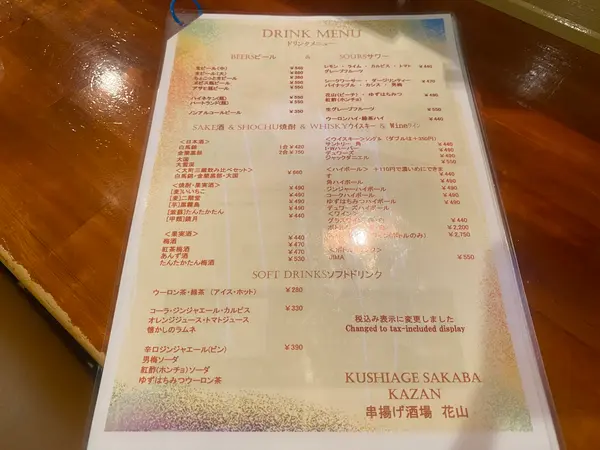 DRINK MENU
ドリンクメニュー
BEERSビール & SOURSサワー
生ビール(中) ¥540
生ビール(大)
ちょこっと生ビール
ヱビス瓶ビール
アサヒ瓶ビール ¥550
ハイネケン(瓶) ¥550
ハートランド(瓶) ¥550
ノンアルコールビール ¥350
レモン・ライム・カルピス・トマト ¥440
グレープフルーツ
シークワーサー・ダージリンティー ¥420
パイナップル・カシス・男梅
花山(ピーチ)・ゆずはちみつ ¥490
紅酢(ホンチョ)
生グレープフルーツ ¥550
ウーロンハイ・緑茶ハイ ¥440
SAKE酒 & SHOCHU焼酎 & WHISKYウイスキー & Wineワイン
<日本酒>
白馬錦 1合 ¥420
金蘭黒部 2合 ¥750
大国
大雪渓
<大町三蔵飲み比べセット> ¥660
白馬錦・金蘭黒部・大国
<焼酎・果実酒>
[麦]いいちこ ¥490
[麦]二階堂 ¥490
[芋]黒霧島 ¥490
[紫蘇]たんたかたん ¥440
[甲類]鏡月
<果実酒> ¥440
梅酒 ¥470
紅茶梅酒 ¥470
あんず酒 ¥530
たんたかたん梅酒
<ウイスキー>シングル (ダブルは+¥330円)
サントリー 角 ¥440
I・Wハーパー ¥490
デュワーズ ¥490
ジャックダニエル ¥550
<ハイボール> +110円で濃いめにできます
角ハイボール ¥440
ジンジャーハイボール ¥490
コークハイボール ¥490
ゆずはちみつハイボール ¥490
デュワーズハイボール ¥490
<ワイン>
グラスワイン ¥450
¥2,200
¥2,750
ZIMA ¥550
SOFT DRINKSソフトドリンク
ウーロン茶・緑茶 (アイス・ホット) ¥280
コーラ・ジンジャエール・カルピス ¥330
オレンジジュース・トマトジュース
懐かしのラムネ
辛口ジンジャエール(ビン) ¥390
男梅ソーダ
紅酢(ホンチョ)ソーダ
ゆずはちみつウーロン茶
税込み表示に変更しました
Changed to tax-included display
KUSHIAGE SAKABA
KAZAN
串揚げ酒場 花山